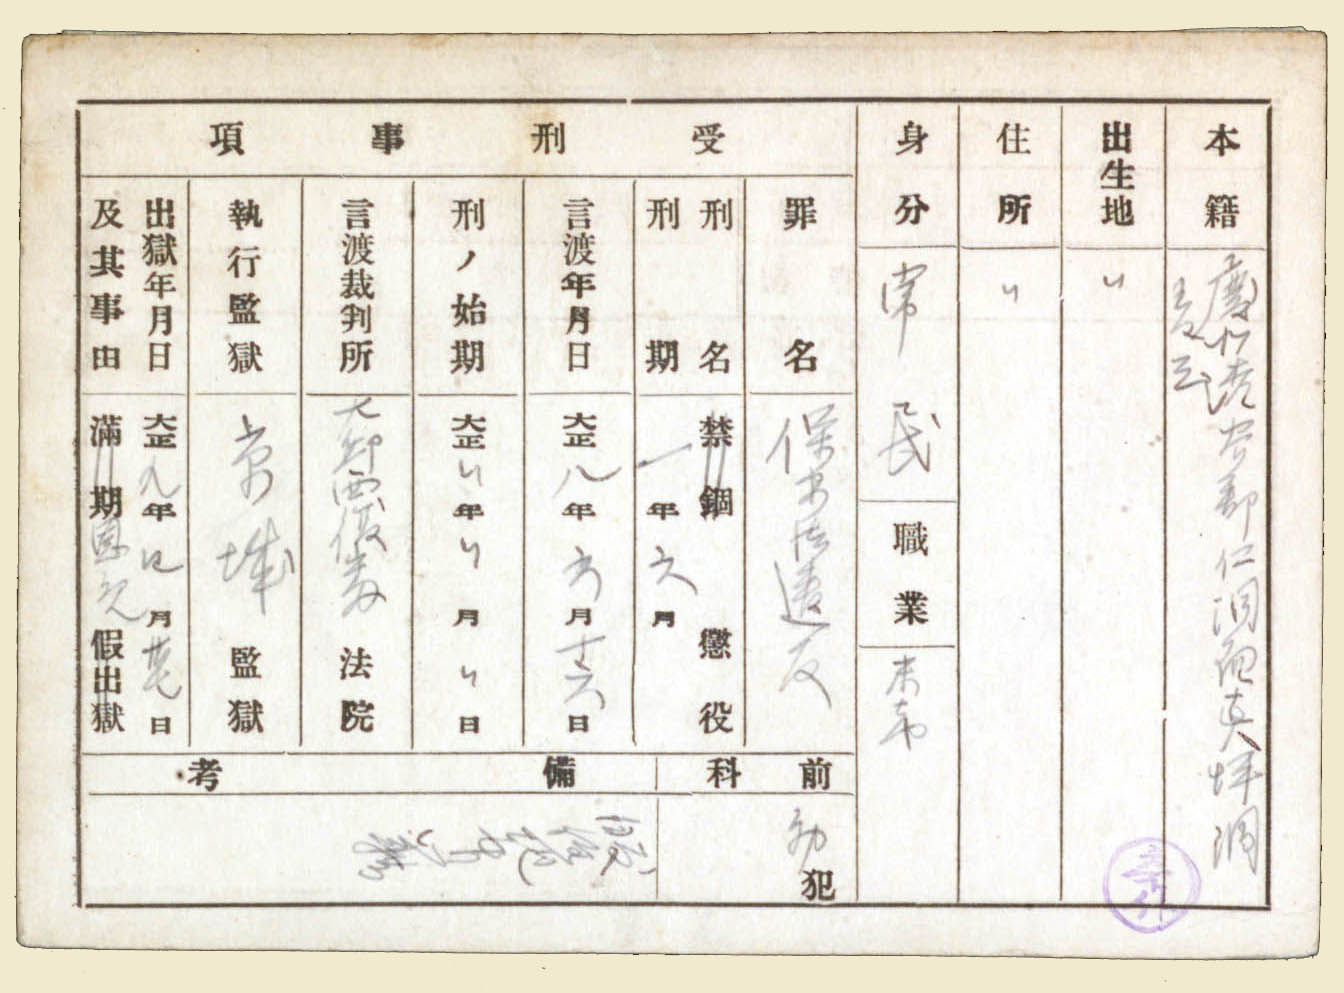 本籍
慶北漆谷郡仁同面真坪洞
出生地
〃
住所
〃
身分
常民
職業
受刑事項
罪名
保安法違反
刑名
禁錮 懲役
刑期
一年六月
言渡年月日
大正八年六月十六日
刑ノ始期
大正〃年〃月〃日
言渡裁判所
大邱覆審法院
執行監獄
京城監獄
出獄年月日
及其事由
大正九年四月廿七日
滿期 假出獄
前科
初犯
備考